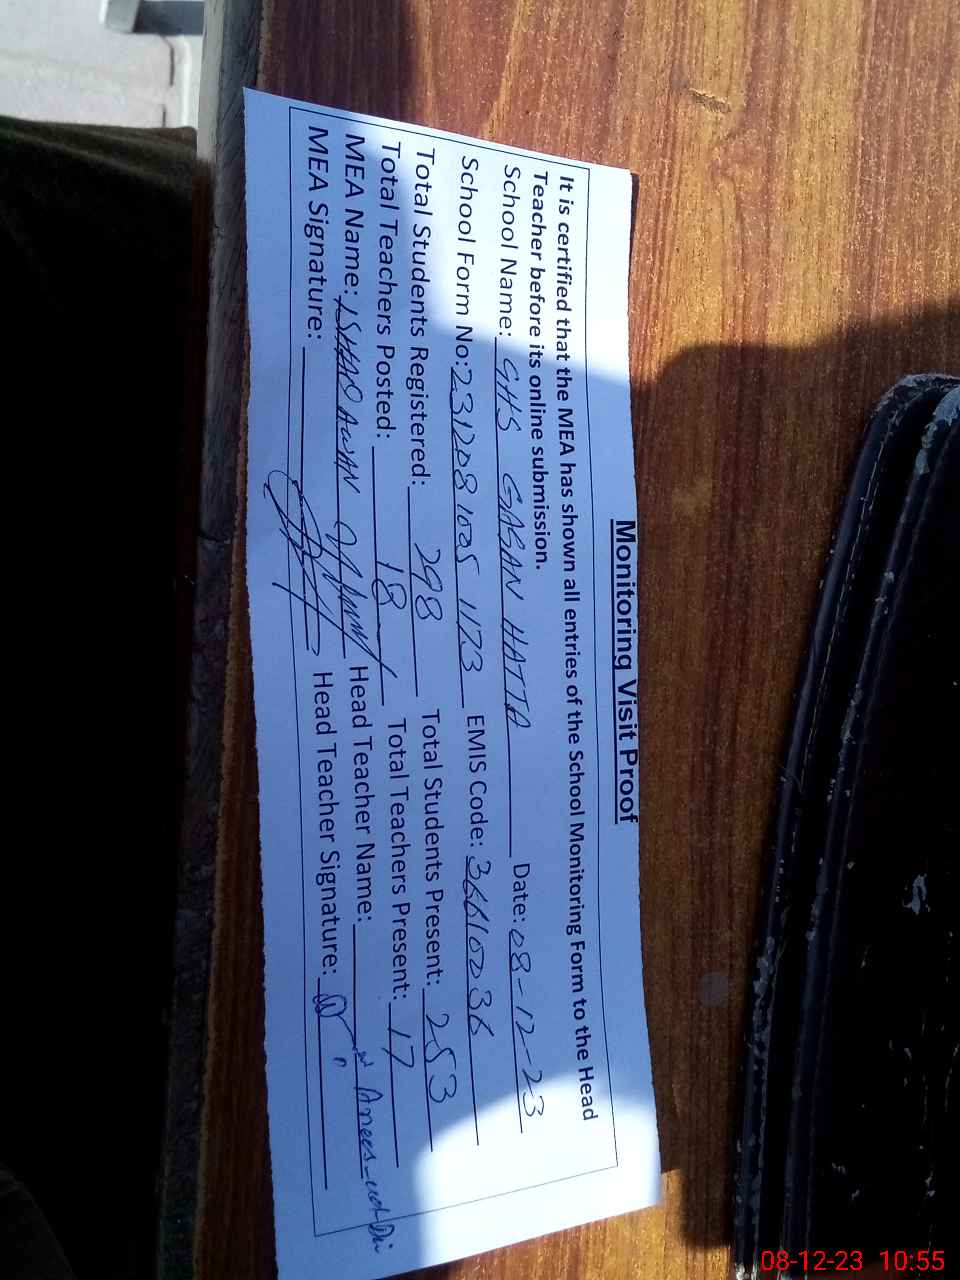 Monitoring Visit Proof
It is certified that the MEA has shown all entries of the School Monitoring Form to the Head
Teacher before its online submission.
School Name: GHS GASAN HATTA Date: 08-12-23
School Form No: 231208 1005 1173 EMIS Code: 36610036
Total Students Registered: 298 Total Students Present: 253
Total Teachers Posted: 18 Total Teachers Present: 17
MEA Name: ISHAQ AWAN Head Teacher Name: Anees-ud-Din
MEA Signature: Head Teacher Signature:
08-12-23 10:55